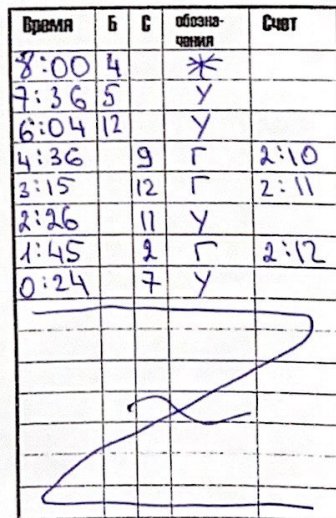 Время Б С обозна-чения Счет
8:00 4 *
7:36 5 У
6:04 12 У
4:36 9 Г 2:10
3:15 12 Г 2:11
2:26 11 У
1:45 2 Г 2:12
0:24 7 У